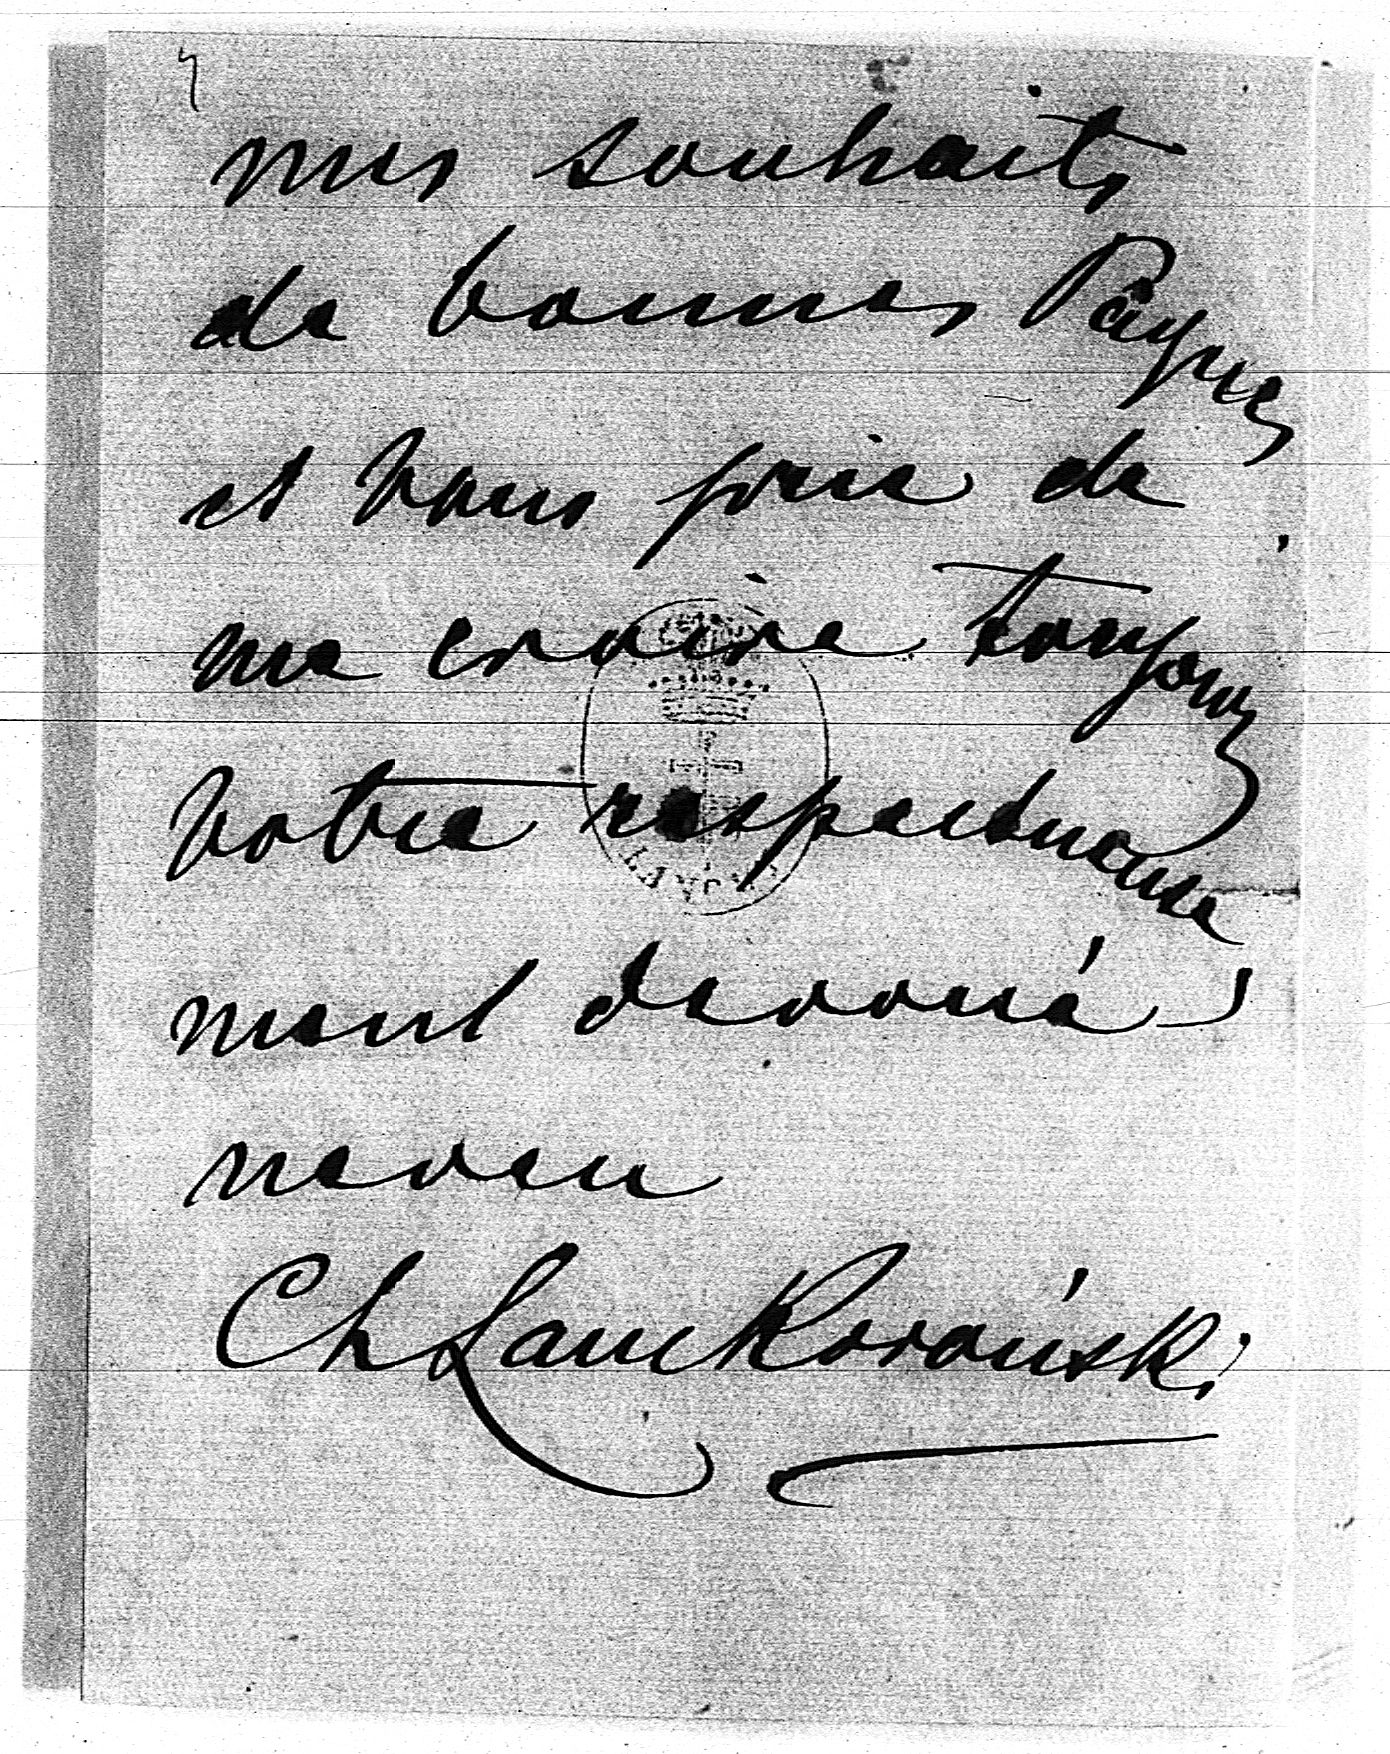 mes souhaits
de bonnes Pâques
et vous prie de
me croire toujours
votre respectueuse
ment dévoué
neveu
Ch Lanckoroński